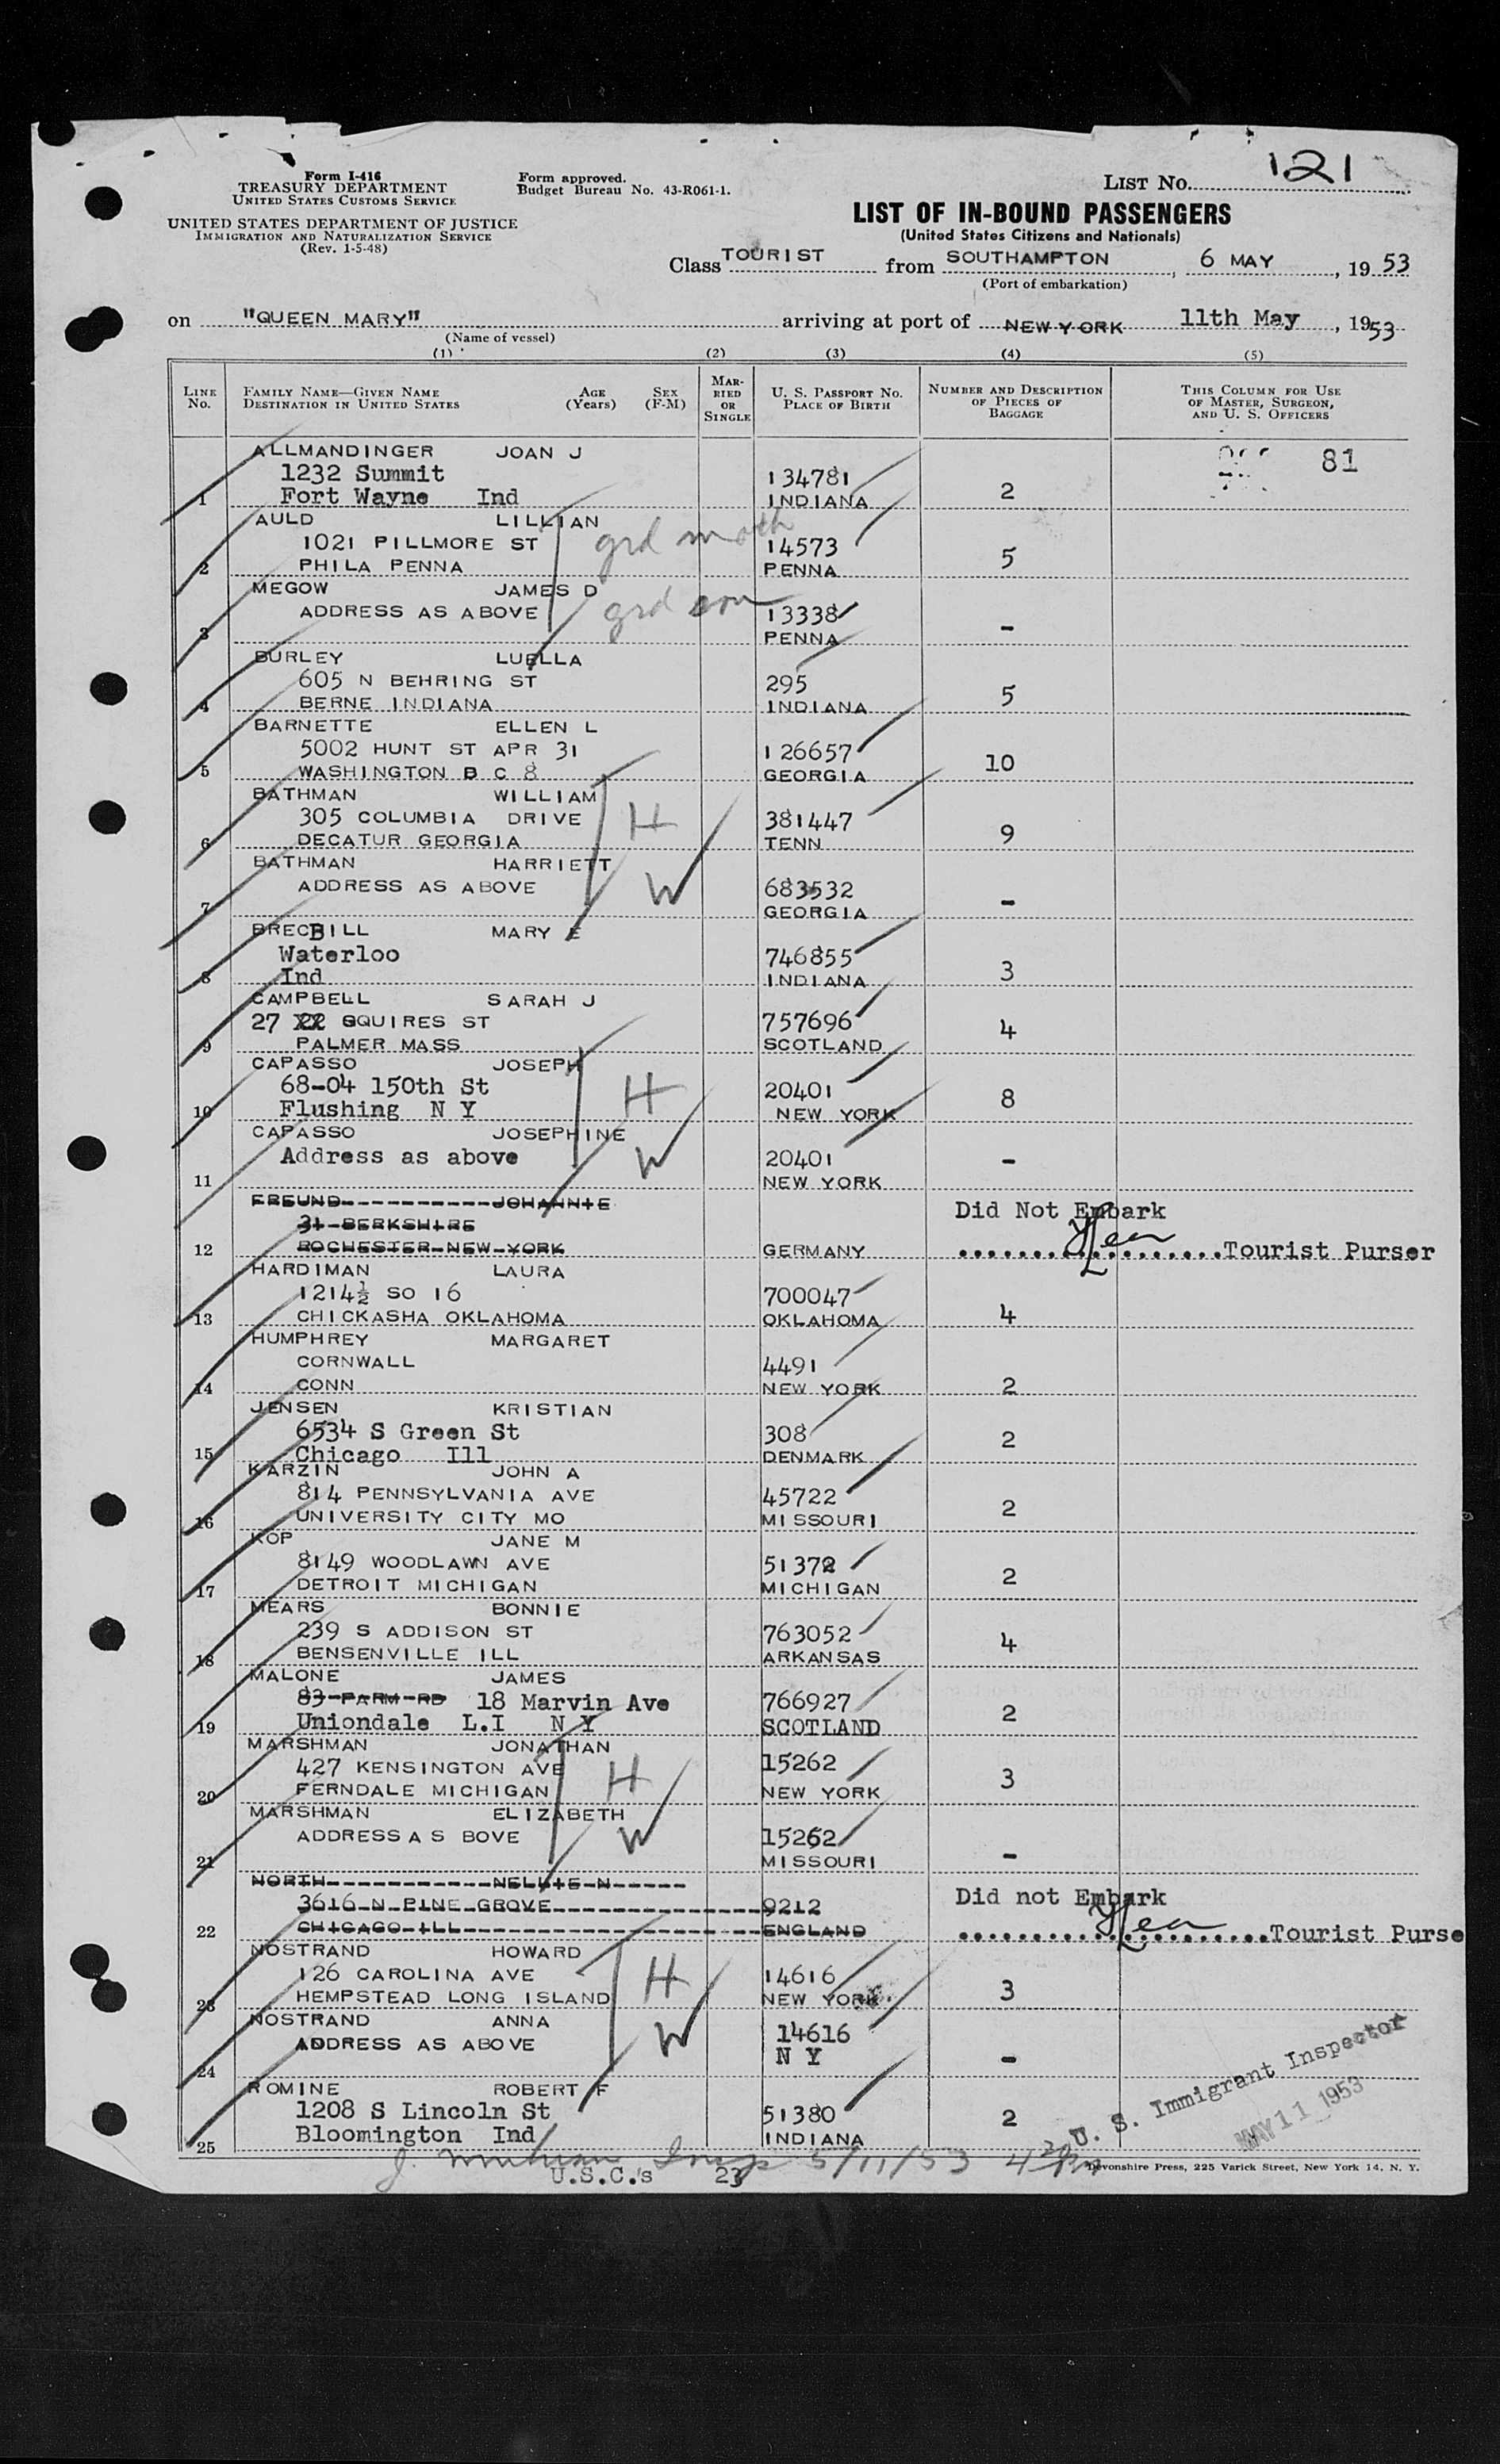 121
Form I-416
TREASURY DEPARTMENT
UNITED STATES CUSTOMS SERVICE
UNITED STATES DEPARTMENT OF JUSTICE
IMMIGRATION AND NATURALIZATION SERVICE
(Rev. 1-5-48)
Form approved.
Budget Bureau No. 43-R061-1.
LIST NO.
LIST OF IN-BOUND PASSENGERS
(United States Citizens and Nationals)
Class TOURIST from SOUTHAMPTON, 6 MAY, 1953
(Port of embarkation)
on "QUEEN MARY" arriving at port of NEW YORK 11th May, 1953
(Name of vessel)
(1) (2) (3) (4) (5)
LINE NO.
FAMILY NAME—GIVEN NAME AGE (Years) SEX (F-M)
DESTINATION IN UNITED STATES
MARRIED OR SINGLE
U. S. PASSPORT NO.
PLACE OF BIRTH
NUMBER AND DESCRIPTION OF PIECES OF BAGGAGE
THIS COLUMN FOR USE OF MASTER, SURGEON, AND U. S. OFFICERS
ALLMANDINGER JOAN J 81
1232 Summit 134781
1 Fort Wayne Ind INDIANA 2
AULD LILLIAN grd moth
1021 PILLMORE ST 14573
2 PHILA PENNA PENNA 5
MEGOW JAMES D grd son
ADDRESS AS ABOVE 13338
3 PENNA -
BURLEY LUELLA
605 N BEHRING ST 295
4 BERNE INDIANA INDIANA 5
BARNETTE ELLEN L
5002 HUNT ST APR 31 126657
5 WASHINGTON D C 8 GEORGIA 10
BATHMAN WILLIAM H
305 COLUMBIA DRIVE 381447
6 DECATUR GEORGIA TENN 9
BATHMAN HARRIETT W
ADDRESS AS ABOVE 683532
7 GEORGIA -
BRECBILL MARY E
Waterloo 746855
8 Ind INDIANA 3
CAMPBELL SARAH J
27 SQUIRES ST 757696
9 PALMER MASS SCOTLAND 4
CAPASSO JOSEPH H
68-04 150th St 20401
10 Flushing N Y NEW YORK 8
CAPASSO JOSEPHINE W
Address as above 20401
11 NEW YORK -
FREUND JOHANNIE
31 BERKSHIRE Did Not Embark
12 ROCHESTER NEW YORK GERMANY Tourist Purser
HARDIMAN LAURA
1214½ SO 16 700047
13 CHICKASHA OKLAHOMA OKLAHOMA 4
HUMPHREY MARGARET
CORNWALL 4491
14 CONN NEW YORK 2
JENSEN KRISTIAN
6534 S Green St 308
15 Chicago Ill DENMARK 2
KARZIN JOHN A
814 PENNSYLVANIA AVE 45722
16 UNIVERSITY CITY MO MISSOURI 2
KOP JANE M
8149 WOODLAWN AVE 51372
17 DETROIT MICHIGAN MICHIGAN 2
MEARS BONNIE
239 S ADDISON ST 763052
18 BENSENVILLE ILL ARKANSAS 4
MALONE JAMES
83 FARM RD 18 Marvin Ave 766927
19 Uniondale L.I N Y SCOTLAND 2
MARSHMAN JONATHAN H
427 KENSINGTON AVE 15262
20 FERNDALE MICHIGAN NEW YORK 3
MARSHMAN ELIZABETH W
ADDRESS A S BOVE 15262
21 MISSOURI -
NORTH NELLIE N
3616 N PINE GROVE 9212 Did not Embark
22 CHICAGO ILL ENGLAND Tourist Purse
NOSTRAND HOWARD H
126 CAROLINA AVE 14616
23 HEMPSTEAD LONG ISLAND NEW YORK 3
NOSTRAND ANNA W
ADDRESS AS ABOVE 14616
24 N Y -
ROMINE ROBERT F
1208 S Lincoln St 51380
25 Bloomington Ind INDIANA 2
U. S. Immigrant Inspector
MAY 11 1953
Insp 5/11/53
U.S.C.'s 23
Devonshire Press, 225 Varick Street, New York 14, N. Y.